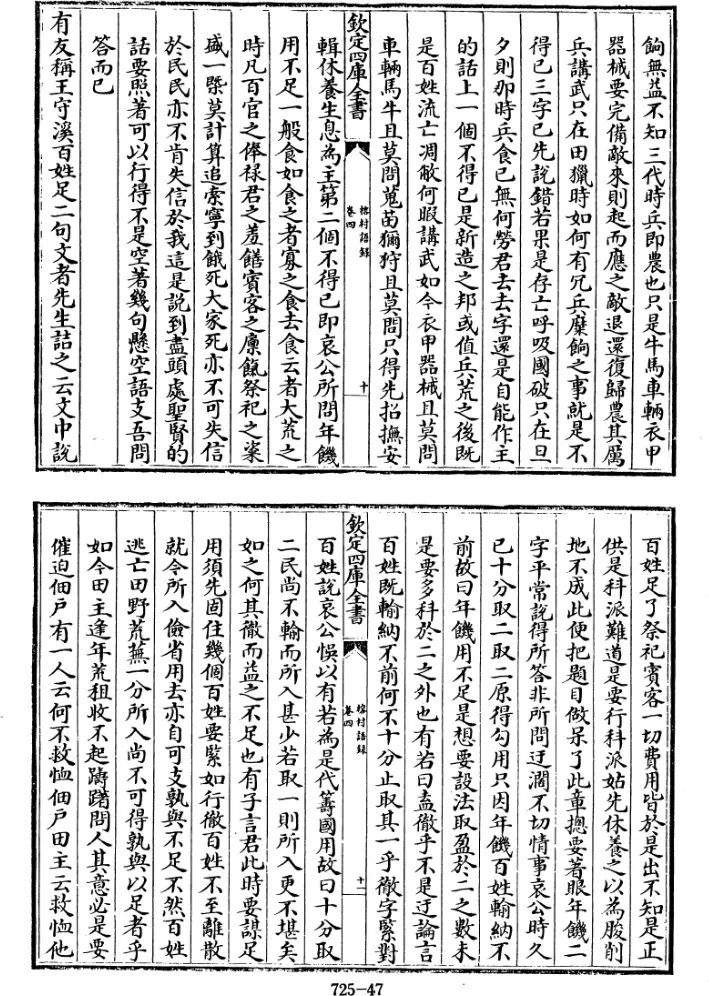 餉無益不知三代時兵即農也只是牛馬車輛衣甲
器械要完備敵來則起而應之敵退還復歸農其厲
兵講武只在田獵時如何有冗兵糜餉之事就是不
得已三字已先說錯若果是存亡呼吸國破只在旦
夕則那時兵食已無何勞君去去字還是自能作主
的話上一個不得已是新造之邦或值兵荒之後既
是百姓流亡凋敝何暇講武如今衣甲器械且莫問
車輛馬牛且莫問蒐苗獮狩且莫問只得先招撫安
欽定四庫全書
榕村語錄
卷四
十
輯休養生息為主第二個不得已即哀公所問年饑
用不足一般食如食之者寡之食去食云者大荒之
時凡百官之俸祿君之羞饍賓客之廩餼祭祀之粢
盛一槩莫計算追索寧到餓死大家死亦不可失信
於民民亦不肯失信於我這是說到盡頭處聖賢的
話要照著可以行得不是空著幾句懸空語支吾問
答而已
有友稱王守溪百姓足二句文者先生詰之云文中說
百姓足了祭祀賓客一切費用皆於是出不知是正
供是科派難道是要行科派姑先休養之以為朘削
地不成此便把題目做呆了此章摠要著眼年饑二
字平常說得所答非所問迂濶不切情事哀公時久
已十分取二取二原得勾用只因年饑百姓輸納不
前故曰年饑用不足是想要設法取盈於二之數未
是要多科於二之外也有若曰盍徹乎不是迂論言
百姓既輸納不前何不十分止取其一乎徹字緊對
欽定四庫全書
榕村語錄
卷四
十一
百姓說哀公悞以有若為是代籌國用故曰十分取
二民尚不輸而所入甚少若取一則所入更不堪矣
如之何其徹而益之不足也有子言君此時要謀足
用須先固住幾個百姓要緊如行徹百姓不至離散
就令所入儉省用去亦自可支孰與不足不然百姓
逃亡田野荒蕪一分所入尚不可得孰與以足者乎
如今田主逢年荒租收不起躊躇問人其意必是要
催迫佃戶有一人云何不救恤佃戶田主云救恤他
725-47